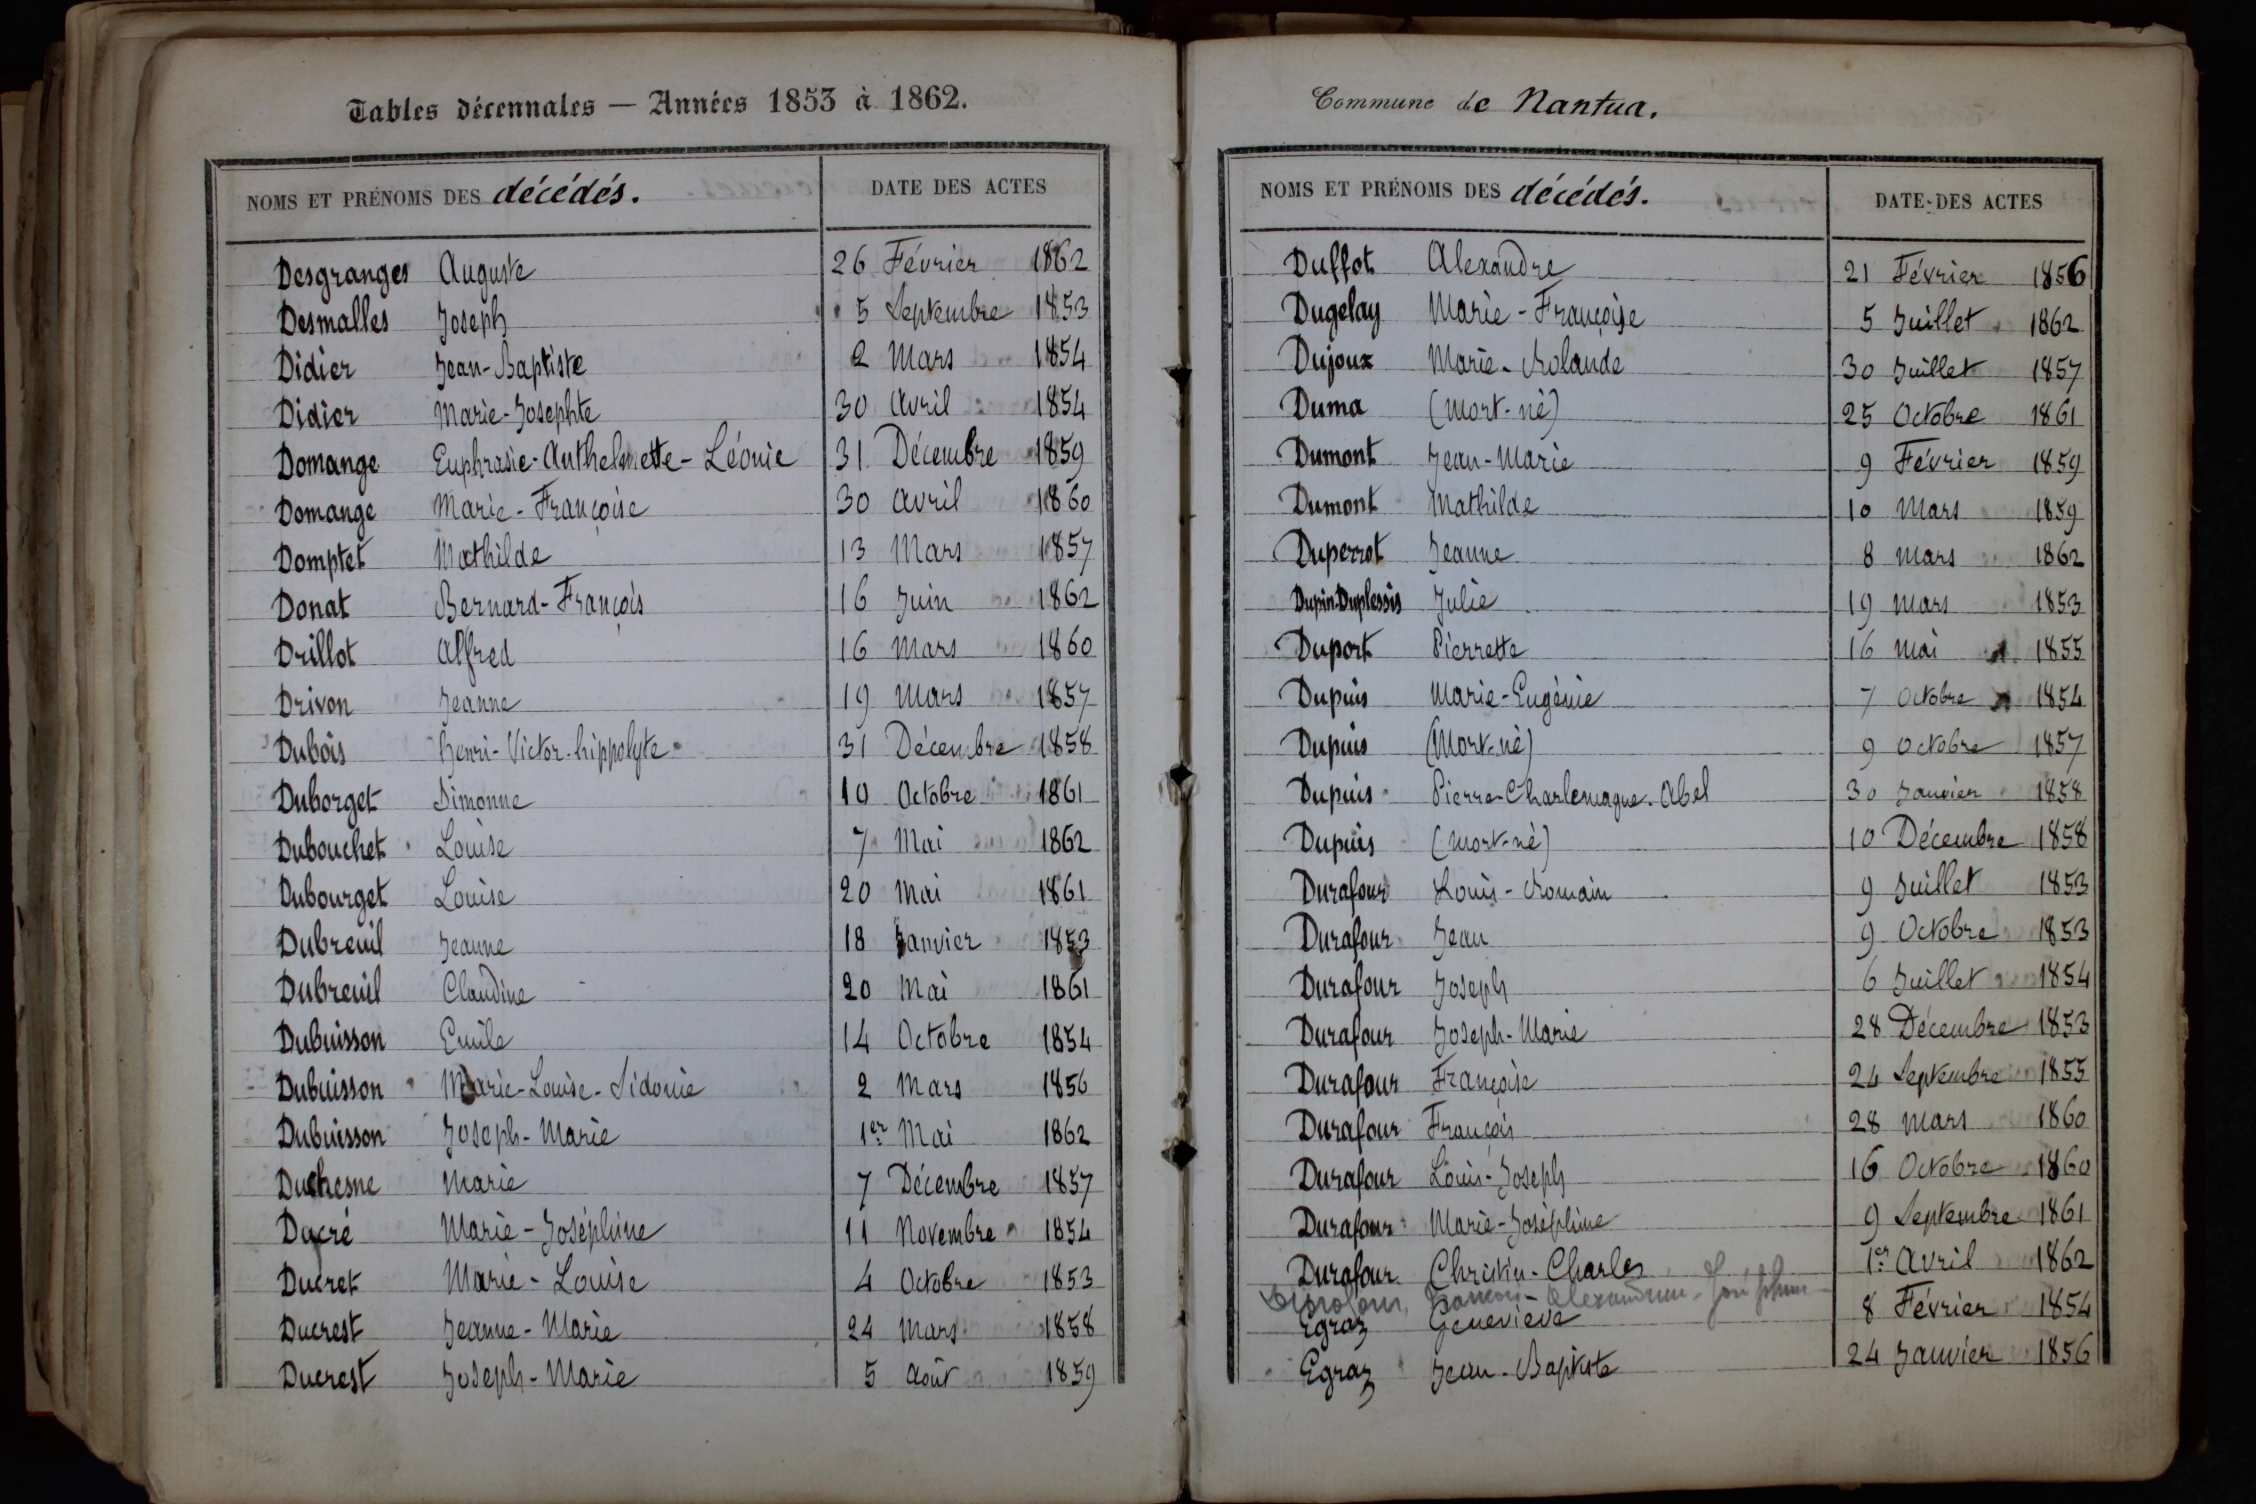 Tables décennales — Années 1853 à 1862.
NOMS ET PRÉNOMS DES décédés. DATE DES ACTES
Desgranges Auguste 26 Février 1862
Desmalles Joseph 5 Septembre 1853
Didier Jean-Baptiste 2 Mars 1854
Didier Marie-Josephte 30 Avril 1854
Domange Euphrasie-Anthelmette-Léonie 31 Décembre 1859
Domange Marie-Françoise 30 Avril 1860
Domptet Mathilde 13 Mars 1857
Donat Bernard-François 16 Juin 1862
Drillot Alfred 16 Mars 1860
Drivon Jeanne 19 Mars 1857
Dubois henri-Victor-hippolyte 31 Décembre 1858
Duborget Simonne 10 Octobre 1861
Dubouchet Louise 7 Mai 1862
Dubourget Louise 20 Mai 1861
Dubreuil Jeanne 18 Janvier 1853
Dubreuil Claudine 20 Mai 1861
Dubuisson Emile 14 Octobre 1854
Dubuisson Marie-Louise-Sidonie 2 Mars 1856
Dubuisson Joseph-Marie 1er Mai 1862
Duchesne Marie 7 Décembre 1857
Ducré Marie-Joséphine 11 Novembre 1854
Ducret Marie-Louise 4 Octobre 1853
Ducrest Jeanne-Marie 24 Mars 1858
Ducrest Joseph-Marie 5 Août 1859
Commune de Nantua.
NOMS ET PRÉNOMS DES décédés. DATE DES ACTES
Duffot Alexandre 21 Février 1856
Dugelay Marie-Françoise 5 Juillet 1862
Dujoux Marie-Rolande 30 Juillet 1857
Duma (Mort-né) 25 Octobre 1861
Dumont Jean-Marie 9 Février 1859
Dumont Mathilde 10 Mars 1859
Duperrot Jeanne 8 Mars 1862
Dupin-Duplessis Julie 19 Mars 1853
Duport Pierrette 16 Mai 1855
Dupuis Marie-Eugénie 7 Octobre 1854
Dupuis (Mort-né) 9 Octobre 1857
Dupuis Pierre-Charlemagne-Abel 30 Janvier 1858
Dupuis (Mort-né) 10 Décembre 1858
Durafour Louis-Romain 9 Juillet 1853
Durafour Jean 9 Octobre 1853
Durafour Joseph 6 Juillet 1854
Durafour Joseph-Marie 28 Décembre 1853
Durafour Françoise 24 Septembre 1855
Durafour François 28 Mars 1860
Durafour Louis-Joseph 16 Octobre 1860
Durafour Marie-Joséphine 9 Septembre 1861
Durafour Christin-Charles 1er Avril 1862
Egraz Geneviève 8 Février 1854
Egraz Jean-Baptiste 24 Janvier 1856